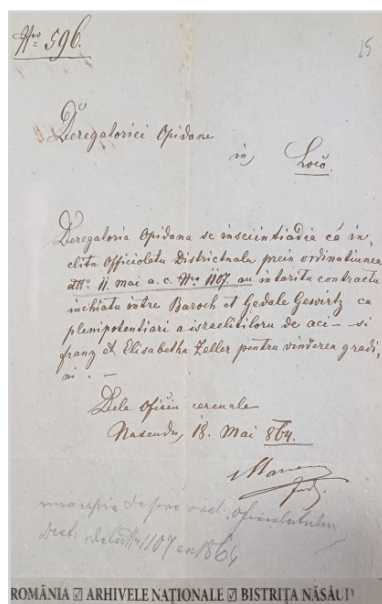 Nro 596.
15
Deregatoriei Opidane
in Loco.
Deregatoria Opidana se insciintiadia că in-
clitu Officiolatu Districtualu prein ordinatiunea
ddto. 11. mai a. c. Nro 1107 au intaritu contractu
inchiatu intre Baroch et Gedale Gewirtz ca
plenipotentiari a israelitiloru de aci – si
franz et Elisabetha Zeller pentru vinderea gradi,
ni. –
Dela Oficiu cercuale
Naseudu, 18. Mai 864.
Dest. dela Nr 1107 en 1864
ROMÂNIA ☑ ARHIVELE NAȚIONALE ☑ BISTRIȚA NĂSĂUD